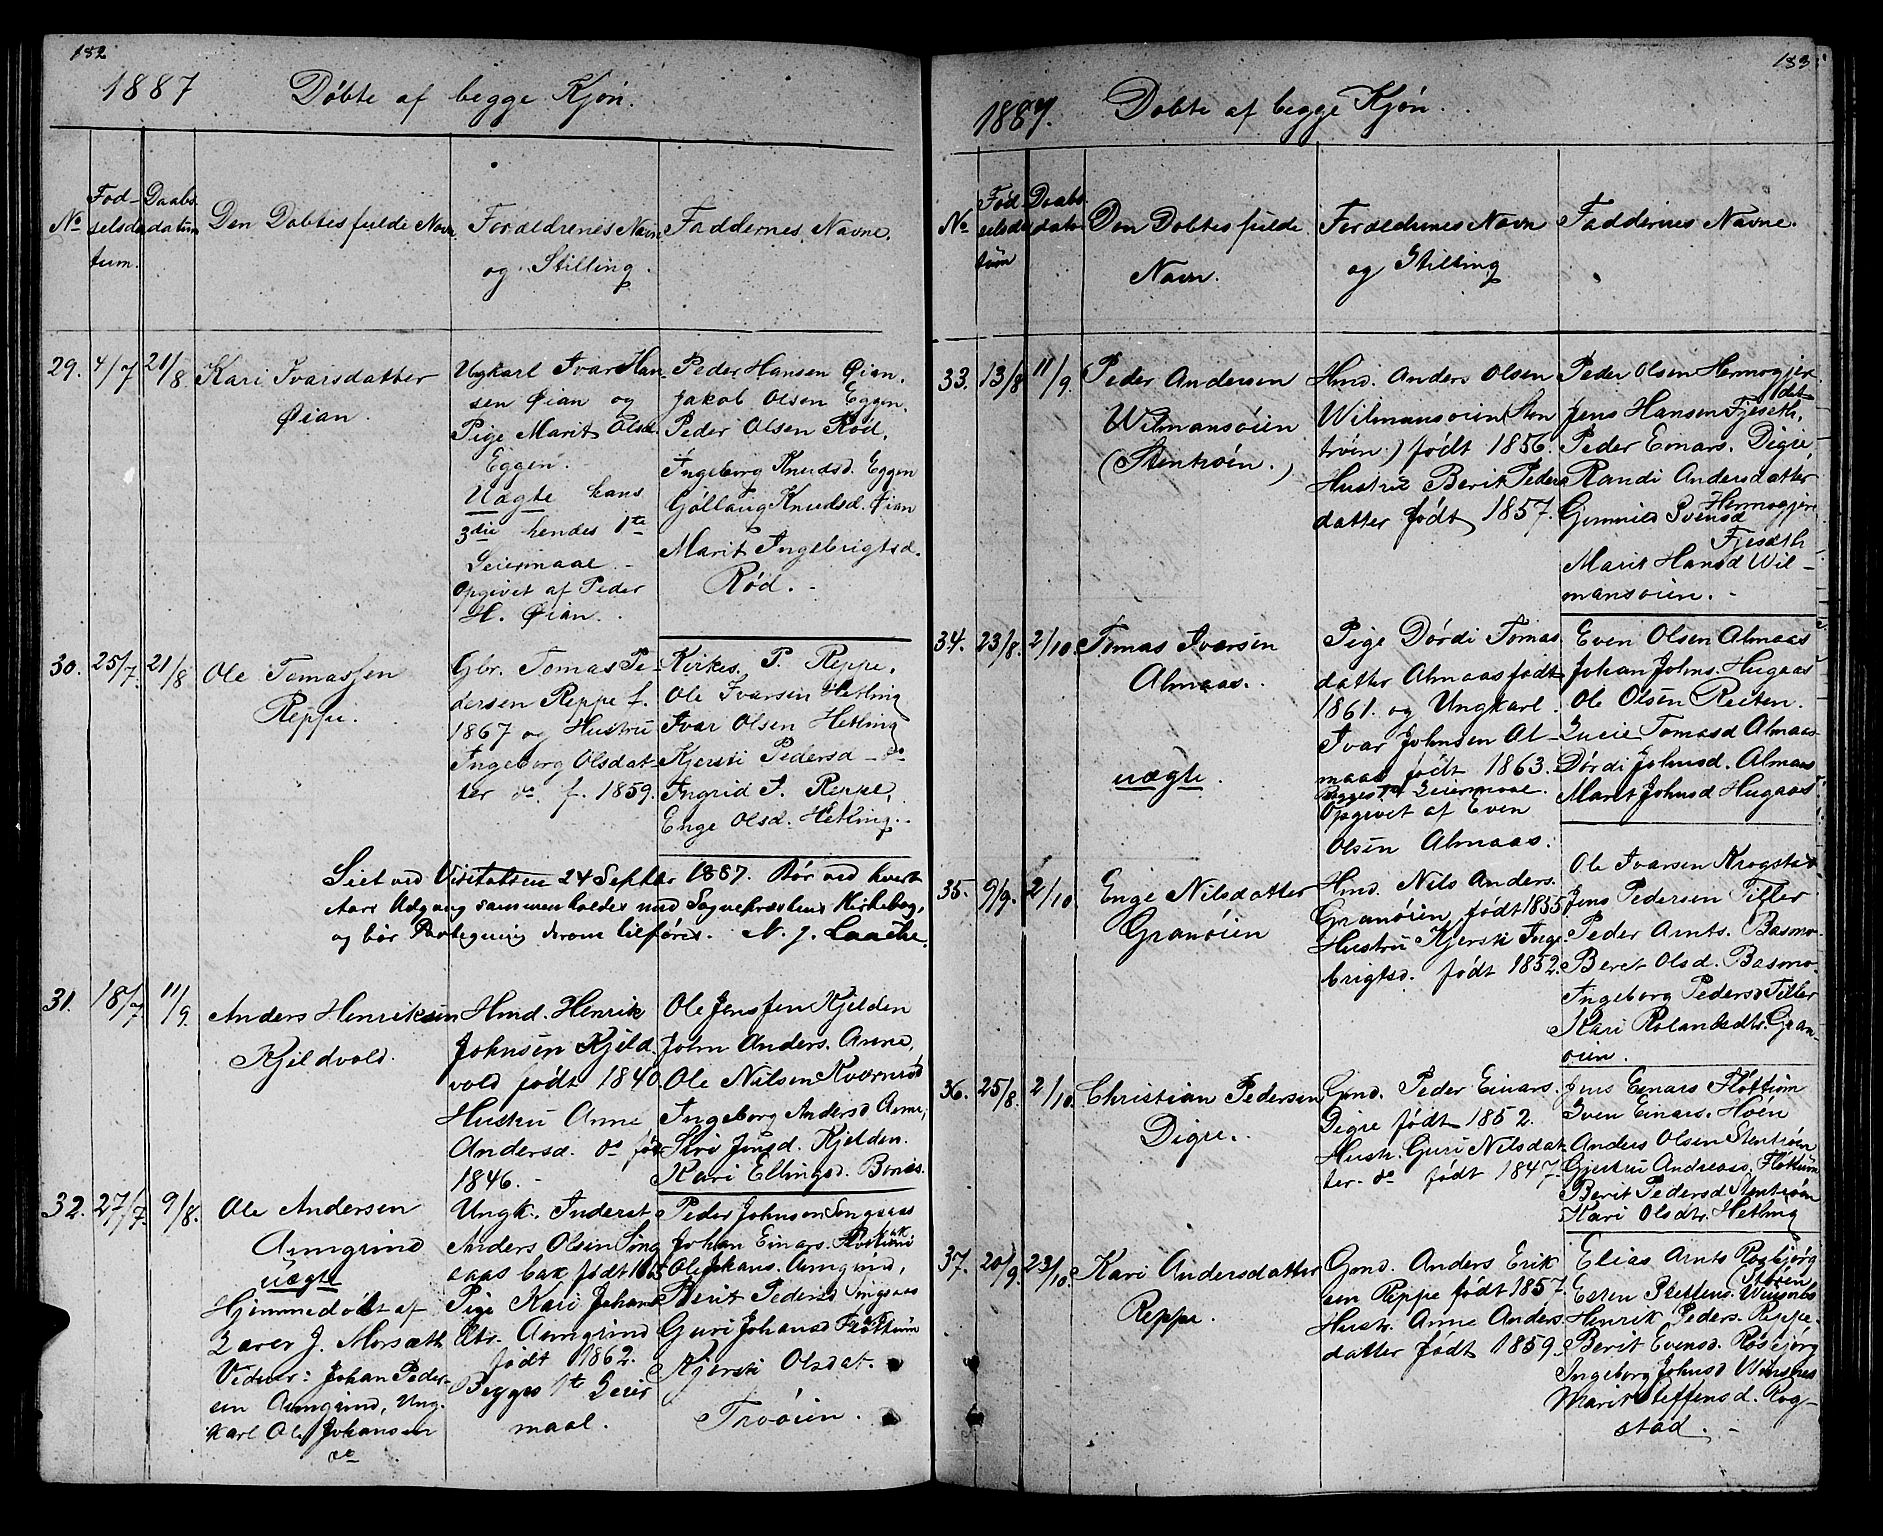 182
1887 Döbte af begge Kjön.
No
Föd-
selsda
tum.
Daabs
datum
Den Döbtes fulde Navn
Forældrenes Navn
og Stilling.
Faddernes Navne.
29. 4/7 21/8
Kari Ivarsdatter
Øian.
Ungkarl Ivar Han
sen Øian og
Pige Marit Olsd.
Eggen.
Uægte hans
3die hendes 1te
Leiermaal.
Opgivet af Peder
H. Øian.
Peder Hansen Øian.
Jakob Olsen Eggen.
Peder Olsen Röd.
Ingeborg Knudsd. Eggen
Göllaug Knudsd. Øian
Marit Ingebrigtsd.
Röd.
30. 25/7 21/8
Ole Tomassen
Reppe.
Gbr. Tomas Pe-
dersen Reppe f.
1867 og Hustru
Ingeborg Olsdat-
ter do. f. 1859.
Kirkes. P. Reppe.
Ole Ivarsen Hetling
Ivar Olsen Hetling
Kjersti Pedersd do
Ingrid T. Reppe,
Enge Olsd. Hetling.
Seet ved Visitatsen 24 Septbr 1887. Bör ved hvert
Aars Udgang sammenholdes med Sognepræstens Kirkebog,
og bör Paategning derom tilföres. N. J. Laache.
31. 18/7 11/9
Anders Henriksen
Kjeldvold.
Hmd. Henrik
Johnsen Kjeld
vold födt 1840
Hustru Anne
Andersd. do fö
1846.
Ole Jenssen Kjelden
John Anders. Aune,
Ole Nilsen Kværnröd
Ingeborg Andersd Aune,
Siri Jensd. Kjelden.
Kari Ellingsd. Bones.
32. 27/7 9/8
Ole Andersen
Aungrind
uægte
Hjemmedöbt af
Lærer J. Morsæth
Vidner: Johan Peder-
sen Aungrind, Ung-
karl Ole Johansen
do
Ungk. Inderst
Anders Olsen Sing
saas bak födt 1865
Pige Kari Johans
dtr. Aungrind
födt 1862.
Begges 1te Leier
maal.
Peder Johnsen Singsaas
Johan Einars. Flöttum
Ole Johans. Aungrind,
Berit Pedersd Singsaas
Guri Johansd Flöttum
Kjersti Olsdat.
Troöien.
183
1887. Döbte af begge Kjön.
No
Föd-
selsda
tum
Daabs
datum
Den Döbtes fulde
Navn.
Forældrenes Navn
og Stilling
Faddernes Navne.
33. 13/8 11/9
Peder Andersen
Wilmansöien
(Stentröen.)
Hmd. Anders Olsen
Wilmansöien (Sten
tröen.) födt 1856.
Hustru Berit Peders
datter födt 1857.
Peder Olsen Hermogjer
det
Jens Hansen Fjeseth,
Peder Einars. Digre
Randi Andersdatter
Hermogjer
Svensd
Fjeseth
Marit Hansd Wil-
mansöien.
34. 23/8. 2/10.
Tomas Ivarsen
Almaas.
uægte.
Pige Dördi Tomas
datter Almaas födt
1861. og Ungkarl
Ivar Johnsen Al-
maas födt 1863.
Begges 1te Leiermaal.
Opgivet af Even
Olsen Almaas.
Even Olsen Almaas
Johan Johns. Hugaas
Ole Olsen Reiten.
Lucie Tomasd Almaas
Dördi Johnsd. Almaas
Marit Johnsd Hugaas
35. 9/9. 2/10
Enge Nilsdatter
Granöien
Hmd. Nils Anders.
Granöien, födt 1855
Hustru Kjersti Inge
brigtsd. födt 1852.
Ole Ivarsen Krogstad
Jens Pedersen Tiller
Peder Arnts. Basmo-
Berit Olsd. Basmo-
Ingeborg Pedersd Tiller
Kari Rolandsdtr. Gran-
öien.
36. 25/8. 2/10.
Christian Pedersen
Digre.
Gmd. Peder Einars.
Digre födt 1852.
Hustr. Guri Nilsdat-
ter do födt 1847
Jens Einars Flöttum
Sven Einars. Hoen
Anders Olsen Stentröen
Gjertru Andreasd. Flöttum
Berit Pedersd Stentröen
Kari Olsdtr. Hetling
37. 20/9 23/10.
Kari Andersdatter
Reppe.
Gmd. Anders Erik
sen Reppe födt 1857.
Hustr. Anne Anders
datter födt 1859.
Elias Arnts Rogbjörg
(Stören
Esten Steffens. Winsnes
Henrik Peders. Reppe
Berit Evensd. Rösbjörg
Ingeborg Johnsd Winsnes
Marit Steffensd. Rog-
stad.